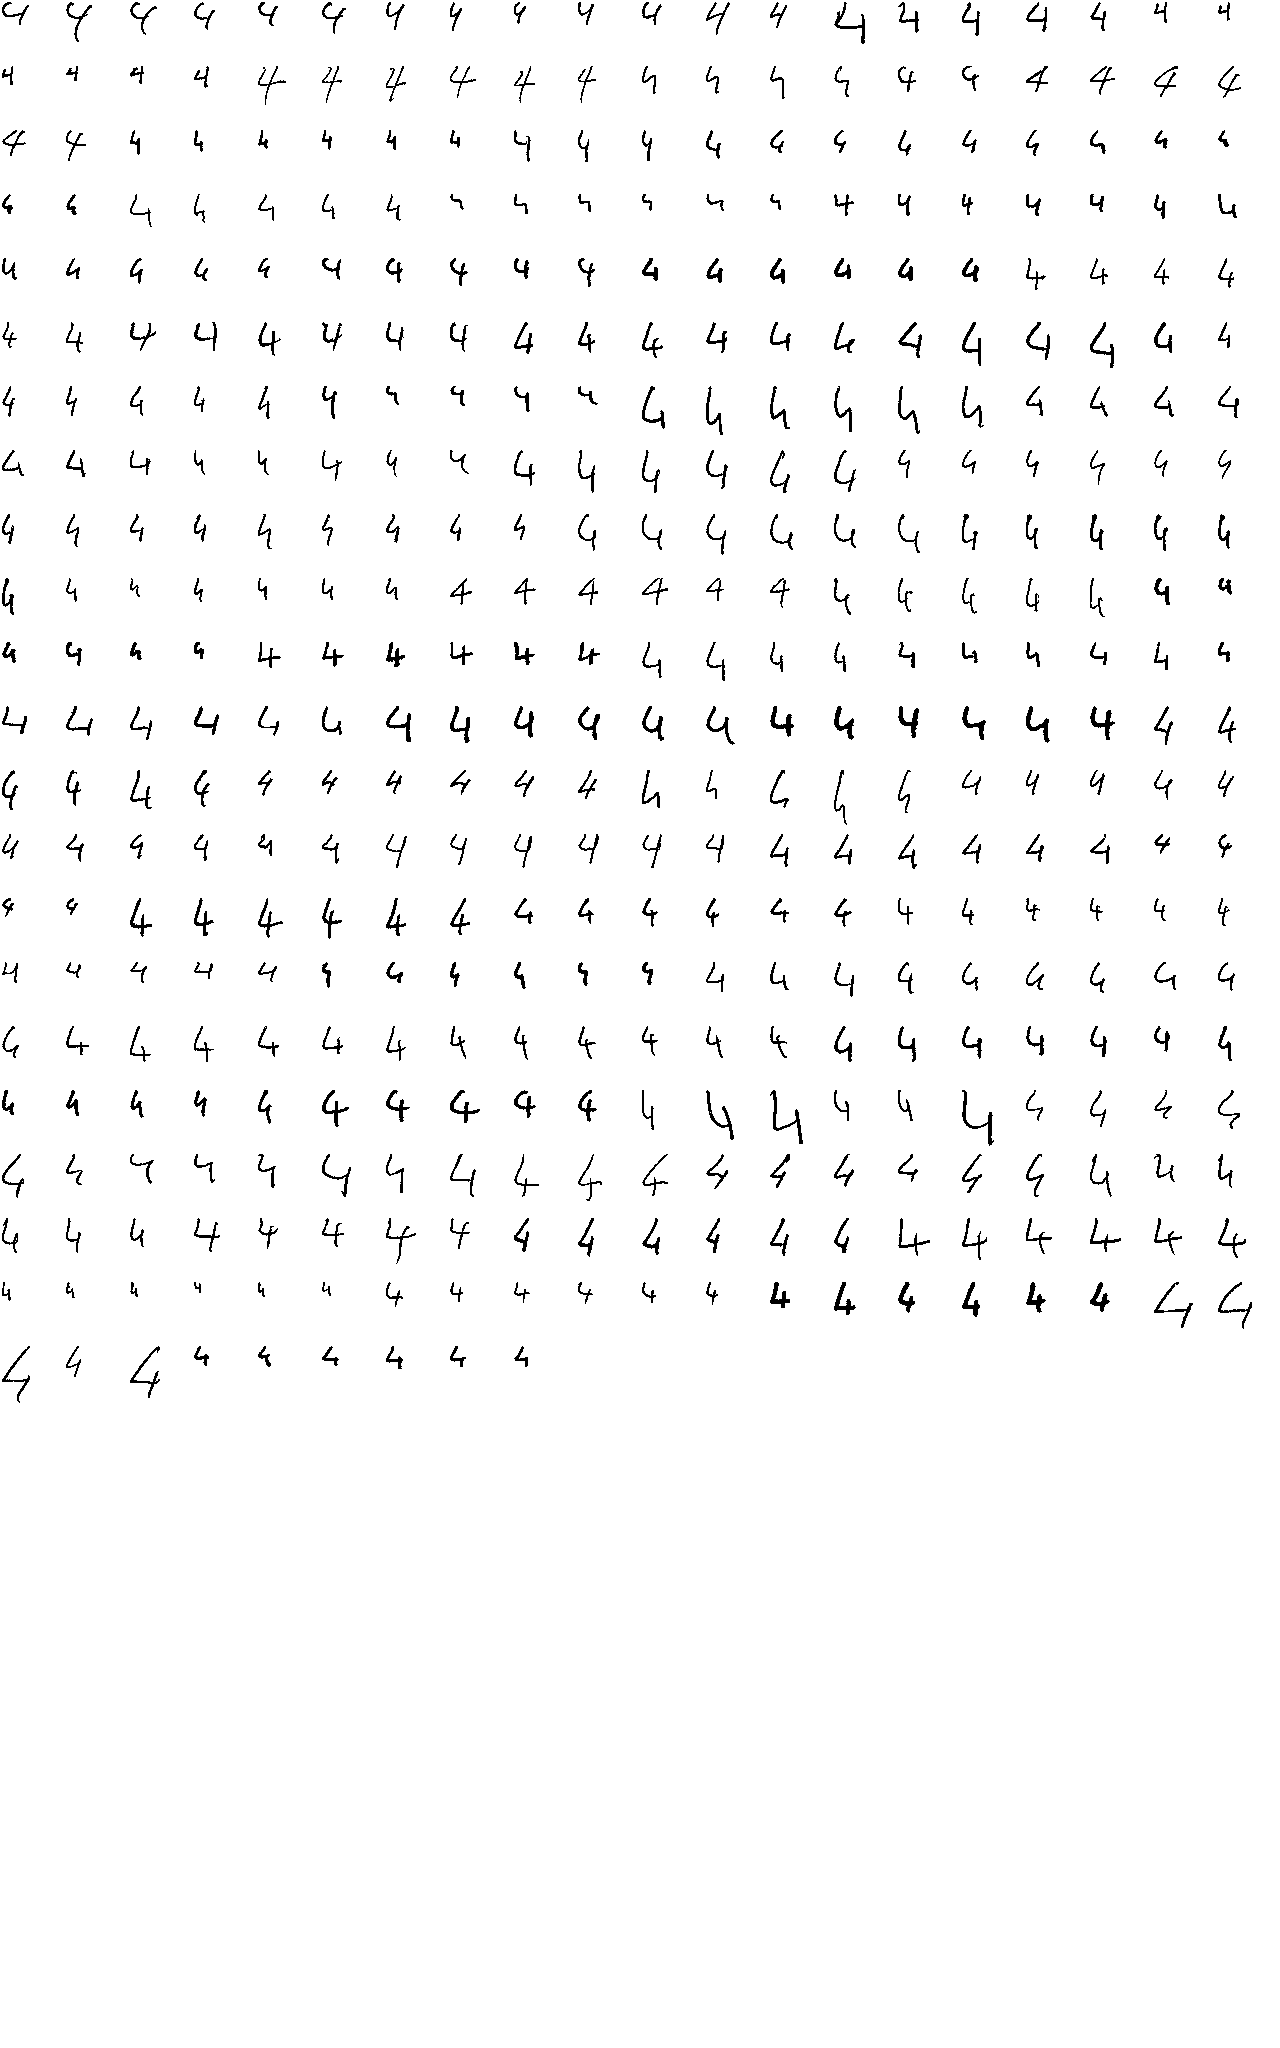 4 4 4 4 4 4 4 4 4 4 4 4 4 4 4 4 4 4 4 4
4 4 4 4 4 4 4 4 4 4 4 4 4 4 4 4 4 4 4 4
4 4 4 4 4 4 4 4 4 4 4 4 4 4 4 4 4 4 4 4
4 4 4 4 4 4 4 4 4 4 4 4 4 4 4 4 4 4 4 4
4 4 4 4 4 4 4 4 4 4 4 4 4 4 4 4 4 4 4 4
4 4 4 4 4 4 4 4 4 4 4 4 4 4 4 4 4 4 4 4
4 4 4 4 4 4 4 4 4 4 4 4 4 4 4 4 4 4 4 4
4 4 4 4 4 4 4 4 4 4 4 4 4 4 4 4 4 4 4 4
4 4 4 4 4 4 4 4 4 4 4 4 4 4 4 4 4 4 4 4
4 4 4 4 4 4 4 4 4 4 4 4 4 4 4 4 4 4 4 4
4 4 4 4 4 4 4 4 4 4 4 4 4 4 4 4 4 4 4 4
4 4 4 4 4 4 4 4 4 4 4 4 4 4 4 4 4 4 4 4
4 4 4 4 4 4 4 4 4 4 4 4 4 4 4 4 4 4 4 4
4 4 4 4 4 4 4 4 4 4 4 4 4 4 4 4 4 4 4 4
4 4 4 4 4 4 4 4 4 4 4 4 4 4 4 4 4 4 4 4
4 4 4 4 4 4 4 4 4 4 4 4 4 4 4 4 4 4 4 4
4 4 4 4 4 4 4 4 4 4 4 4 4 4 4 4 4 4 4 4
4 4 4 4 4 4 4 4 4 4 4 4 4 4 4 4 4 4 4 4
4 4 4 4 4 4 4 4 4 4 4 4 4 4 4 4 4 4 4 4
4 4 4 4 4 4 4 4 4 4 4 4 4 4 4 4 4 4 4 4
4 4 4 4 4 4 4 4 4 4 4 4 4 4 4 4 4 4 4 4
4 4 4 4 4 4 4 4 4